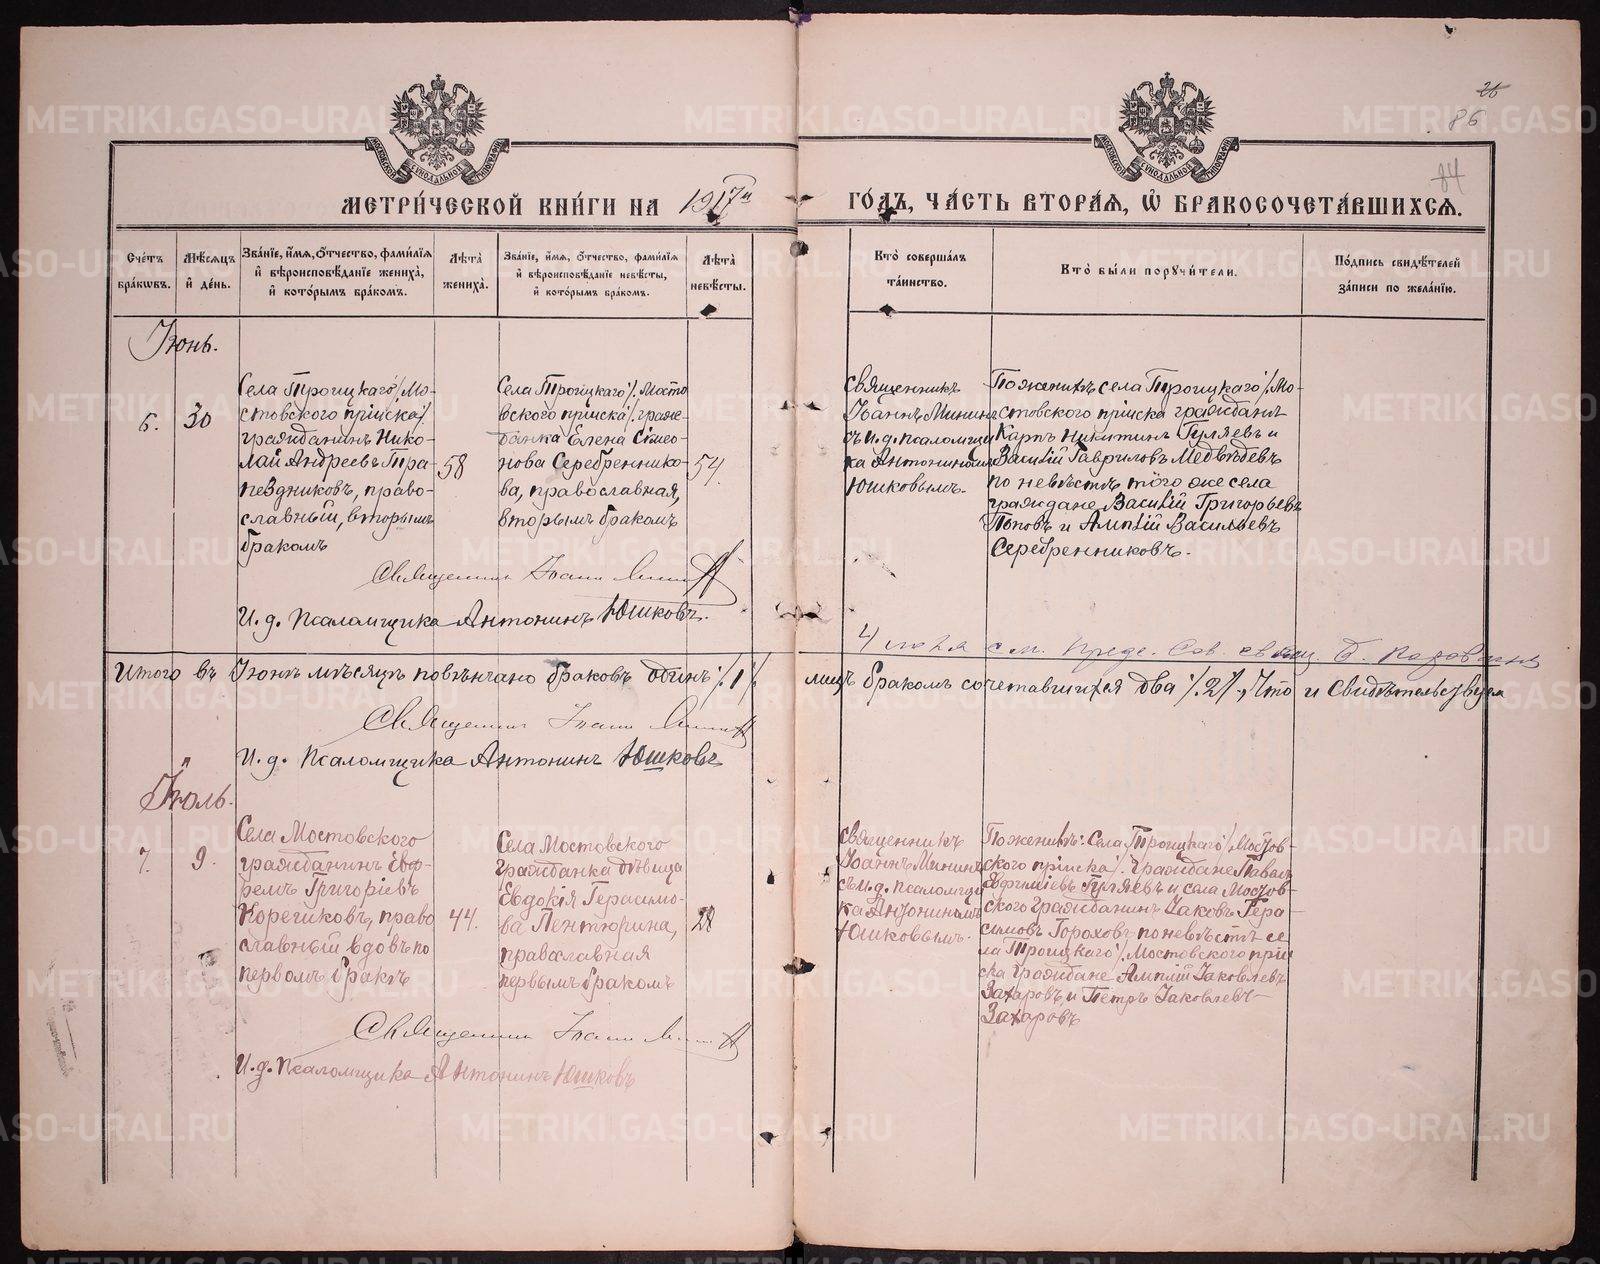 26
86
84
МЕТРИ́ЧЕСКОЙ КНИ́ГИ НА 1917й ГО́ДЪ, ЧА́СТЬ ВТОРА́Я, Ѡ҆ БРАКОСОЧЕТА́ВШИХСЯ.
Сче́тъ бра́кѡвъ.
Мѣ́сяцъ и҆ де́нь.
Зва́нїе, и҆́мя, ѻ҆́тчество, фами́лїя
и҆ вѣроисповѣ́данїе жениха̀,
и҆ кото́рымъ бра́комъ.
Лѣ́та̀ жениха̀.
Зва́нїе, и҆́мя, ѻ҆́тчество, фами́лїя
и҆ вѣроисповѣ́данїе невѣ́сты,
и҆ кото́рымъ бра́комъ.
Лѣ́та̀ невѣ́сты.
Кто̀ соверша́лъ
та́инство.
Кто̀ бы́ли порꙋчи́тели.
По́дпись свидѣ́телей
за́писи по жела́нїю.
Іюнь.
6.
30
Села Троицкаго /Мо-
стовского пріиска/
гражданинъ Нико-
лай Андреевъ Тра-
пездниковъ, право-
славный, вторымъ
бракомъ
58
Села Троицкаго /Мосто
вского пріиска/ граж-
данка Елена Симео-
нова Серебреннико-
ва, православная,
вторымъ бракомъ
54.
Священникъ
Іоаннъ Мининъ
съ И.д. псаломщи
ка Антониномъ
Юшковымъ.
По женихѣ села Троицкаго /Мо-
стовского пріиска граждане
Карпъ Никитинъ Гуляевъ и
Василій Гавриловъ Медвѣдевъ
по невѣстѣ того же села
граждане Василій Григорьевъ
Поповъ и Амплій Васильевъ
Серебренниковъ.
Священникъ Іоаннъ Мининъ
И.д. Псаломщика Антонинъ Юшковъ.
Итого въ Іюнѣ мѣсяцѣ повѣнчано браковъ одинъ /1/ лицъ бракомъ сочетавшихся два /2/, Что и свидѣтельствуем
Священникъ Іоаннъ Мининъ
И.д. Псаломщика Антонинъ Юшковъ
Іюль.
7.
9.
Села Мостовского
гражданинъ Еф-
ремъ Григоріевъ
Корегиковъ, право
славный вдовъ по
первомъ бракѣ
44.
Села Мостовского
гражданка дѣвица
Евдокія Герасимо-
ва Пентюрина,
православная
первымъ бракомъ
Священникъ
Іоаннъ Мининъ
съ И.д. псаломщи
ка Антониномъ
Юшковымъ.
По женихѣ: Села Троицкаго /Мостов-
ского пріиска/ Граждане Павелъ
Евфиміевъ Гуляевъ и села Мостов-
ского гражданинъ Іаковъ Гера-
симовъ Гороховъ по невѣстѣ се
ла Троицкаго /Мостовского пріи
ска граждане Амплій Іаковлевъ
Захаровъ, и Петръ Іаковлевъ
Захаровъ
Священникъ Іоаннъ Мининъ
И.д. Псаломщика Антонинъ Юшковъ
METRIKI.GASO-URAL.RU